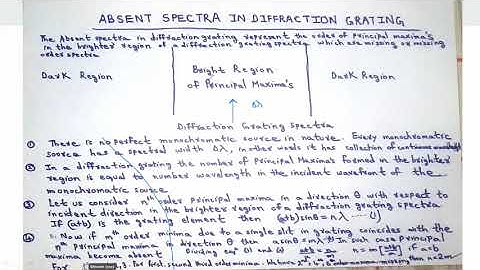 ABSENT SPECTRA IN DIFFRACTION GRATING
The Absent spectra in diffraction grating represent the order of principal maxima's
in the brighter region of a diffraction grating spectra which are missing or missing
order spectra
Dark Region
Bright Region
of Principal Maxima's
Dark Region
Δλ
Diffraction Grating Spectra
① There is no perfect monochromatic source in nature. Every monochromatic
source has a spectral width Δλ, in other words it has collection of continuous
② In a diffraction grating the number of Principal Maximas formed in the brighter
region is equal to number wavelength in the incident wavefront of the
monochromatic source
③ Let us consider nth order principal maxima in a direction θ with respect to
incident direction in the brighter region of a diffraction grating spectra
If (a+b) is the grating element then (a+b)sinθ = nλ ---- (1)
④ Now if mth order minima due to a single slit in grating coincides with the
nth principal maxima in direction θ then asinθ = mλ In such case principal
maxima become absent Dividing eqn (1) and (2) n = m if a=b
For